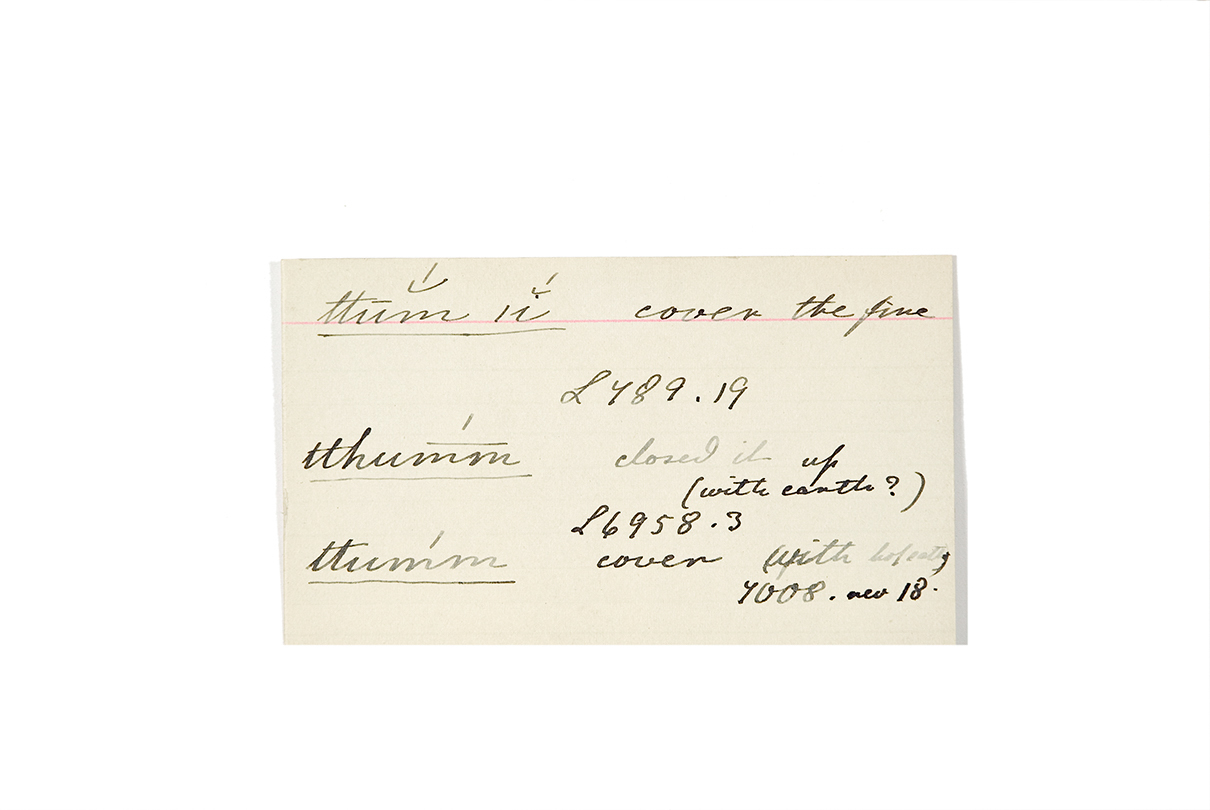 ttu̅m̆́ ıı̆́ cover the fire
L 489.19
tthum̅́m closed it up
(with earth?)
L6958.3
ttum̅́m cover (with
4008. rev 18.